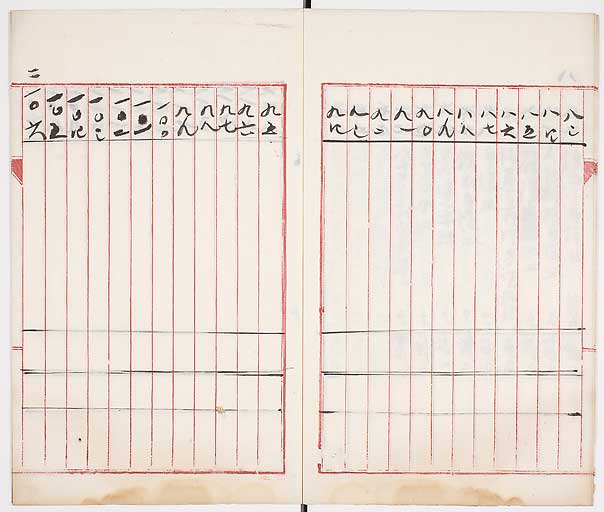 八三
八四
八五
八六
八七
八八
八九
九〇
九一
九二
九三
九四
九五
九六
九七
九八
九九
一〇〇
一〇一
一〇二
一〇三
一〇四
一〇五
一〇六
二